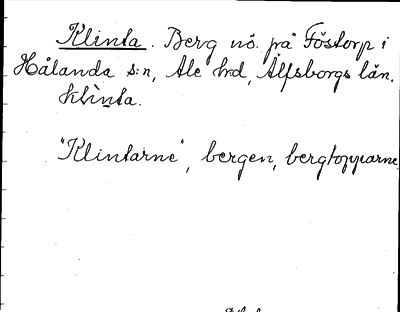 Klinta. Berg nö. på Föstorp i
Hålanda s:n, Ale hrd, Älfsborgs län.
klinta.
"Klintarne", bergen, bergtopparne